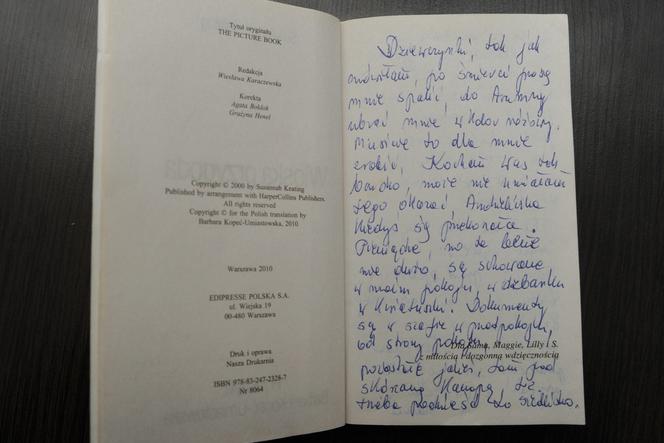 Tytuł oryginału
THE PICTURE BOOK
Redakcja
Wiesława Karaczewska
Korekta
Agata Bołdok
Grażyna Henel
Copyright © 2000 by Susannah Keating
Published by arrangement with HarperCollins Publishers.
All rights reserved
Copyright © for the Polish translation by
Barbara Kopeć-Umiastowska, 2010
Warszawa 2010
EDIPRESSE POLSKA S.A.
ul. Wiejska 19
00-480 Warszawa
Druk i oprawa
Nasza Drukarnia
ISBN 978-83-247-2328-7
Nr 8064
Dziewczynki, tak jak
mówiłam, po śmierci proszę
mnie spalić, do trumny
ubrać mnie w kolor różowy.
Musicie to dla mnie
zrobić. Kocham Was tak
bardzo, może nie umiałam
tego okazać
kiedyś się przekonała.
Pieniądze, no te
nie dużo, są schowane
w moim pokoju, w dzbanku
w kwiatuszki. Dokumenty
są w szafie w przedpokoju,
od strony pokoju,
pozostałe jakieś, tam pod
skórzaną kanapą, też
trzeba podnieść to siedlisko.
Dla Sama, Maggie, Lilly i S.
z miłością i dozgonną wdzięcznością